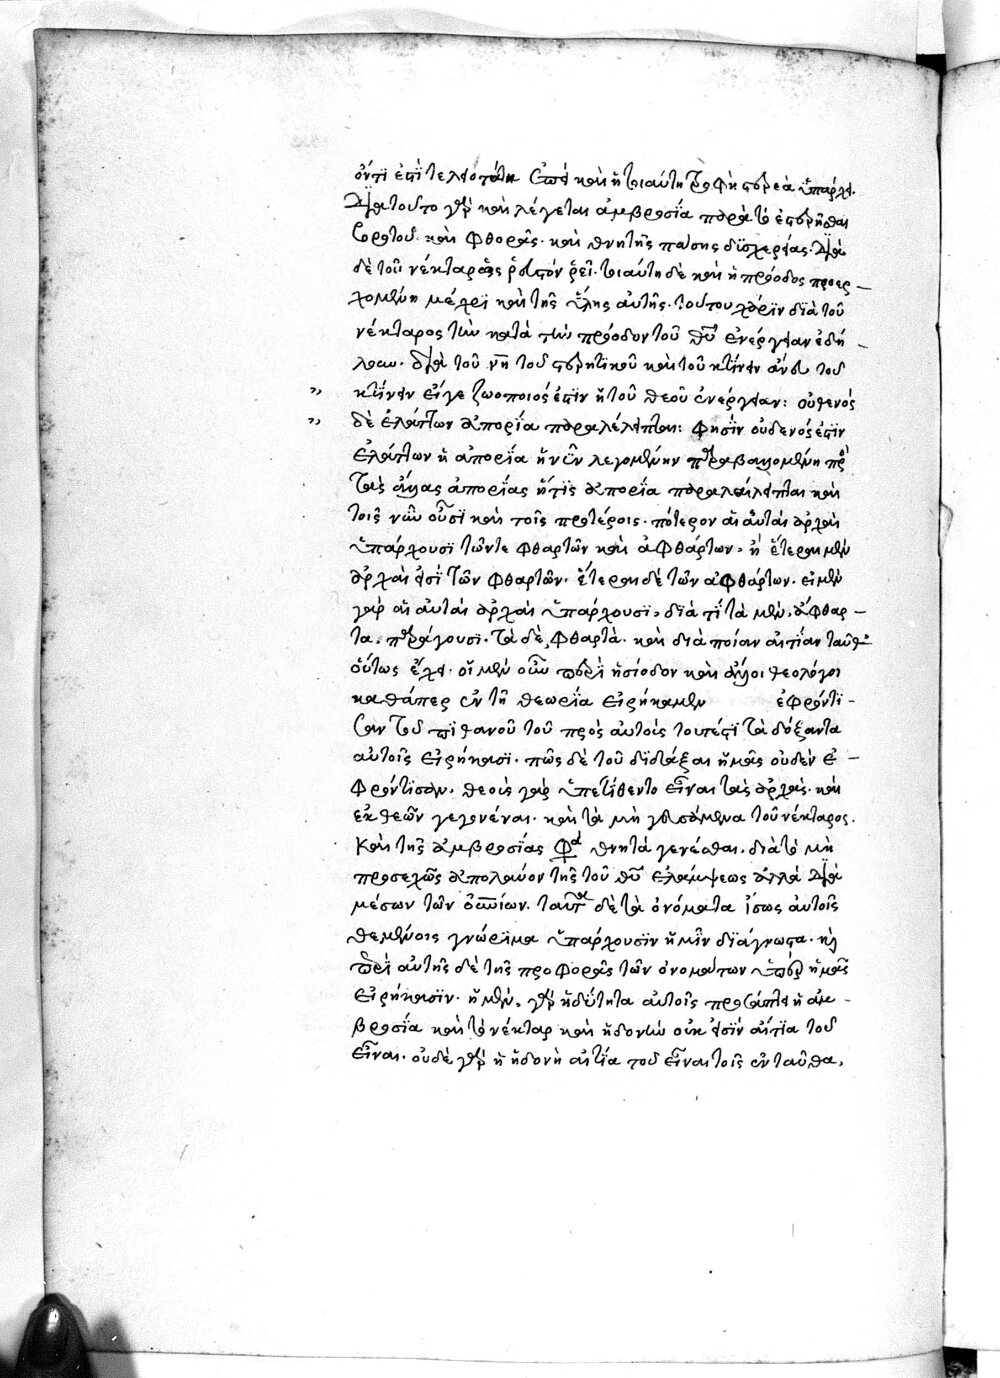 ὄντι ἐστὶ τελειοτάτη ἐπεὶ καὶ ἡ τοιαύτη τροφὴ στερεὰ ὑπάρχει.
διὰ τοῦτο γὰρ καὶ λέγεται ἀμβροσία παρὰ τὸ ἐστερῆσθαι
βροτοῦ καὶ φθορᾶς. καὶ θνητῆς πάσης δυσχερείας. διὰ
δὲ τοῦ νέκταρος ῥευστὸν ῥεῖ. τοιαύτη δὲ καὶ ἡ πρόοδος προερ-
χομένη μέχρι καὶ τῆς ὕλης αὐτῆς. τούτου χάριν διὰ τοῦ
νέκταρος τὴν κατὰ τὴν πρόοδον τοῦ θεοῦ ἐνέργειαν ἐδή-
λουν. διὰ τοῦ νη τοῦ στερητικοῦ καὶ τοῦ κτείνειν ἄνευ τοῦ
κτείνειν εἴγε ζωοποιός ἐστιν ἡ τοῦ θεοῦ ἐνέργεια: οὐθενός
δὲ ἐλάττων ἀπορία παραλέλειπται: φησὶν οὐδενός ἐστιν
ἐλάττων ἡ ἀπορία ἡ νῦν λεγομένη παραβαλλομένη πρὸς
τὰς ἄλλας ἀπορίας ἥτις ἀπορία παραλέλειπται καὶ
τοῖς νῦν οὖσι καὶ τοῖς προτέροις. πότερον αἱ αὐταὶ ἀρχαὶ
ὑπάρχουσι τῶν τε φθαρτῶν καὶ ἀφθάρτων, ἢ ἕτεραι μὲν
ἀρχαὶ εἰσὶ τῶν φθαρτῶν. ἕτεραι δὲ τῶν ἀφθάρτων. εἰ μὲν
γὰρ αἱ αὐταὶ ἀρχαὶ ὑπάρχουσι, διὰ τί τὰ μὲν, ἄφθαρ-
τα, παράγουσι. τὰ δὲ, φθαρτά. καὶ διὰ ποίαν αἰτίαν ταῦθ'
οὕτως ἔχει. οἱ μὲν οὖν περὶ ἡσίοδον καὶ ἄλλοι θεολόγοι
καθάπερ ἐν τῇ θεωρία εἰρήκαμεν ἐφρόντι-
σαν τοῦ πιθανοῦ τοῦ πρὸς αὐτοὺς τουτέστι τὰ δόξαντα
αὐτοῖς εἰρήκασι. πῶς δὲ τοῦ διδάξαι ἡμᾶς οὐδὲν ἐ-
φρόντισαν, θεοὺς γὰρ ὑπετίθεντο εἶναι τὰς ἀρχάς. καὶ
ἐκ θεῶν γεγονέναι. καὶ τὰ μὴ γευσάμενα τοῦ νέκταρος.
καὶ τῆς ἀμβροσίας φασὶ θνητὰ γενέσθαι. διὰ τὸ μὴ
προσεχῶς ἀπολαύον τῆς τοῦ θεοῦ ἐλάμψεως ἀλλὰ διὰ
μέσων τῶν οὐρανίων. ταῦτα δὲ τὰ ὀνόματα ἴσως αὐτοῖς
θεμένοις γνώριμα ὑπάρχουσιν ἡμῖν δὲ ἄγνωστα. καὶ
περὶ αὐτῆς δὲ τῆς προφορᾶς τῶν ὀνομάτων ὑπὲρ ἡμᾶς
εἰρήκασιν. ἡ μὲν, γὰρ ἡδύτητα αὐτοῖς προσάπτει ἡ ἀμ-
βροσία καὶ τὸ νέκταρ καὶ ἡδονὴν οὐκ εἰσὶν αἴτια τοῦ
εἶναι. οὐδὲ γὰρ ἡ ἡδονὴ αἰτία τοῦ εἶναι τοῖς ἐνταῦθα,